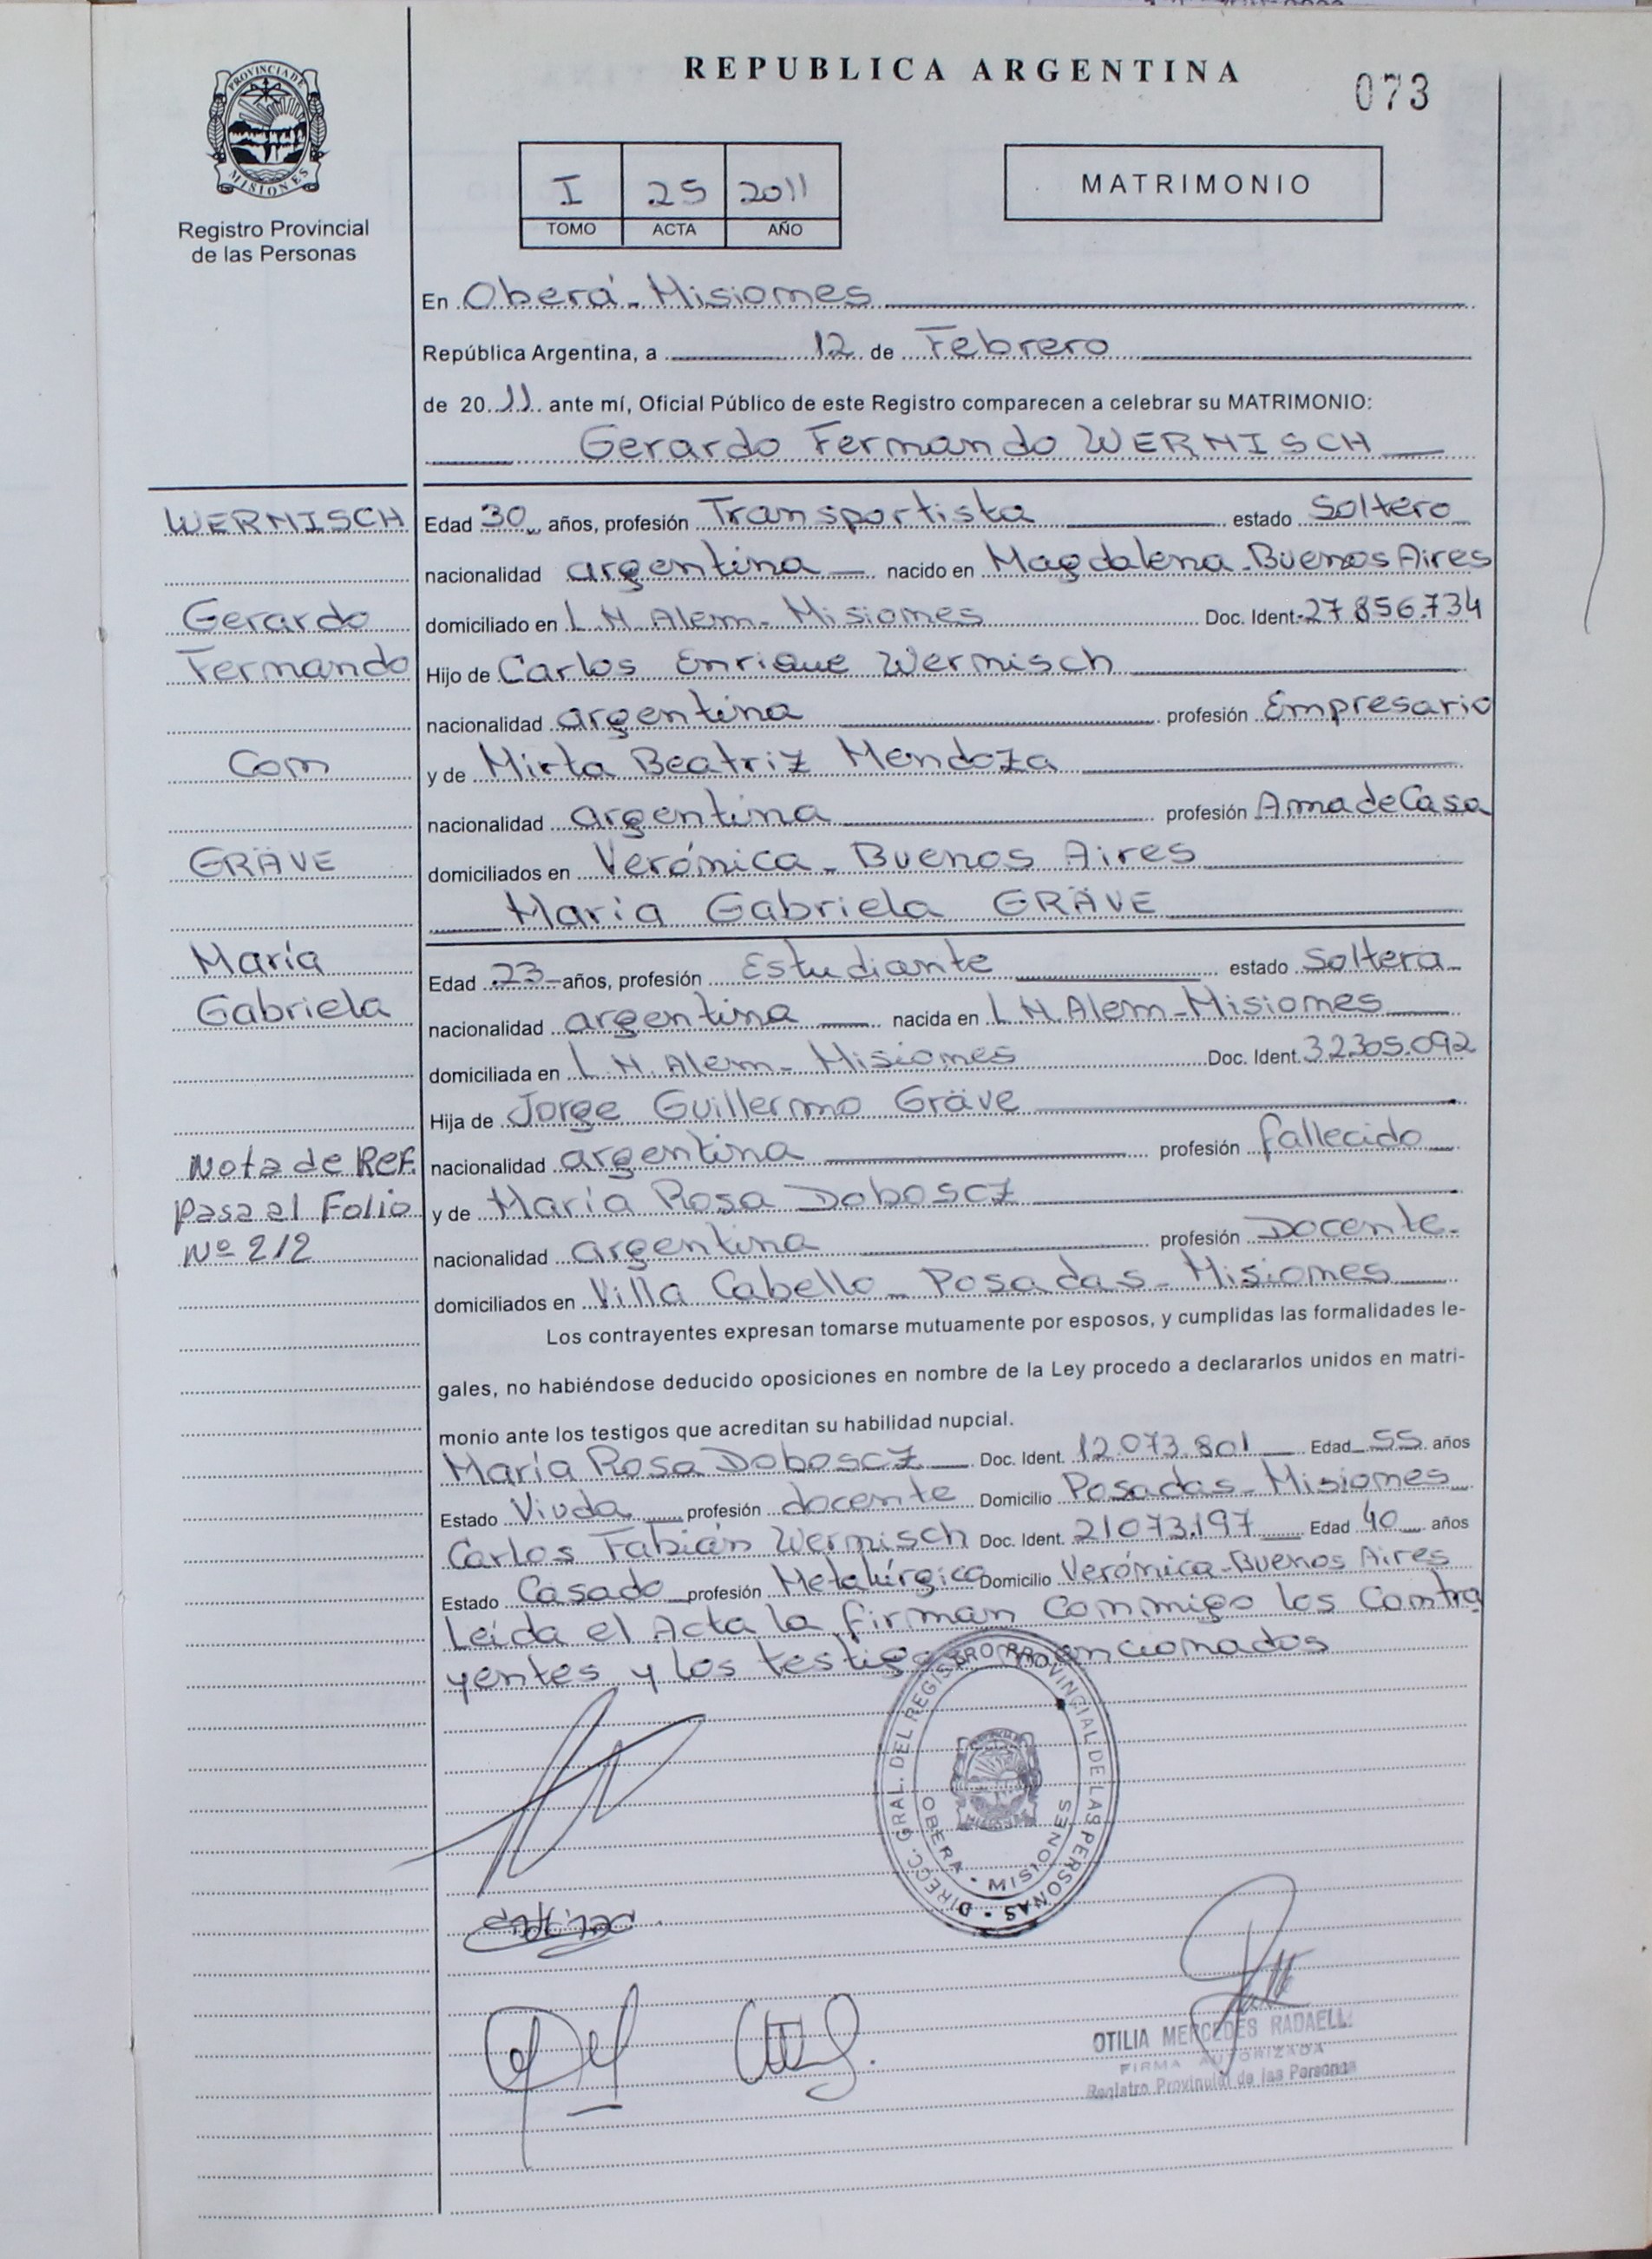 REPUBLICA ARGENTINA
073
PROVINCIA DE
MISIONES
Registro Provincial
de las Personas
I 25 2011
TOMO ACTA AÑO
MATRIMONIO
En Oberá - Misiones
República Argentina, a 12 de Febrero
de 2011 ante mí, Oficial Público de este Registro comparecen a celebrar su MATRIMONIO:
Gerardo Fernando WERNISCH
WERNISCH
Gerardo
Fernando
Con
GRÄVE
María
Gabriela
Nota de Ref.
pasa al Folio
Nº 212
Edad 30 años, profesión Transportista estado Soltero
nacionalidad argentina nacido en Magdalena - Buenos Aires
domiciliado en L. N. Alem - Misiones Doc. Ident. 27.856.734
Hijo de Carlos Enrique Wernisch
nacionalidad argentina profesión Empresario
y de Mirta Beatriz Mendoza
nacionalidad argentina profesión Ama de Casa
domiciliados en Verónica - Buenos Aires
María Gabriela GRÄVE
Edad 23 años, profesión Estudiante estado Soltera
nacionalidad argentina nacida en L. N. Alem - Misiones
domiciliada en L. N. Alem - Misiones Doc. Ident. 32.305.092
Hija de Jorge Guillermo Gräve
nacionalidad argentina profesión fallecido
y de María Rosa Doboscz
nacionalidad argentina profesión Docente.
domiciliados en Villa Cabello - Posadas - Misiones
Los contrayentes expresan tomarse mutuamente por esposos, y cumplidas las formalidades le-
gales, no habiéndose deducido oposiciones en nombre de la Ley procedo a declararlos unidos en matri-
monio ante los testigos que acreditan su habilidad nupcial.
María Rosa Doboscz Doc. Ident. 12.073.801 Edad 55 años
Estado Viuda profesión docente Domicilio Posadas - Misiones
Carlos Fabián Wernisch Doc. Ident. 21073.197 Edad 40 años
Estado Casado profesión Metalúrgico Domicilio Verónica - Buenos Aires
Leída el Acta la firman conmigo los Contra
yentes y los testigos mencionados
DIRECC. GRAL. DEL REGISTRO PROVINCIAL DE LAS PERSONAS
OBERA - MISIONES
OTILIA MERCEDES RADAELLI
FIRMA AUTORIZADA
Registro Provincial de las Personas